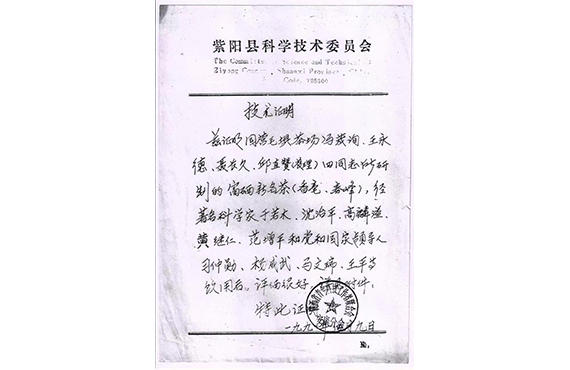 紫阳县科学技术委员会
The Committee of Science and Technical
Ziyang County, Shaanxi Province, China
Code, 725300
技术证明
兹证明国营毛坝茶场冯茂询、王永
德、聂农久、邱直赞(凌理)四同志所研
制的富硒新名茶(香毫、春峰)，经
著名科学家于若木、沈治平、高麟溢、
黄继仁、范增平和党和国家领导人
习仲勋、杨成武、马文瑞、王平等
饮用后。评价很好
特此证
一九九 月九日